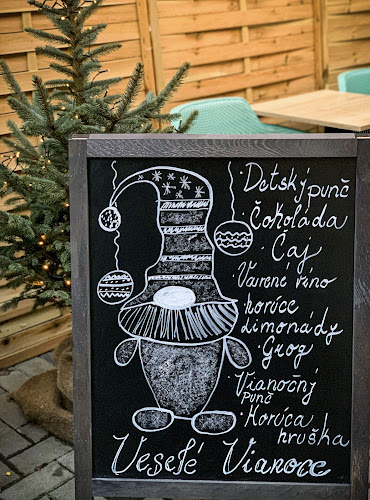 · Detský punč
· Čokoláda
· Čaj
· Varené víno
horúce
limonády
· Grog
Vianočný
punč
· Horúca
hruška
Veselé Vianoce